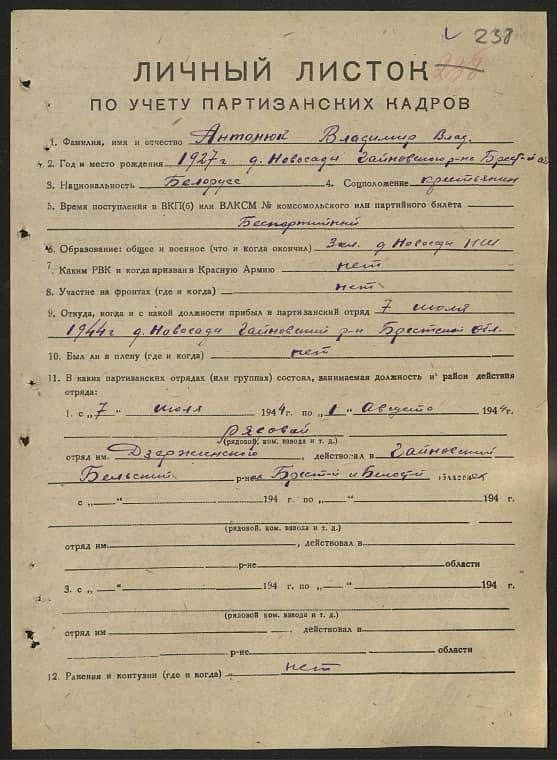 238
ЛИЧНЫЙ ЛИСТОК 238
ПО УЧЕТУ ПАРТИЗАНСКИХ КАДРОВ
1. Фамилия, имя и отчество Антонюк Владимир Влад.
2. Год и место рождения 1927г д. Новосади Гайновского р-на Брест-й об
3. Национальность Белорусс 4. Соцположение крестьянин
5. Время поступления в ВКП(б) или ВЛКСМ № комсомольского или партийного билета
Беспартийный
6. Образование: общее и военное (что и когда окончил) 3 кл. д Новосади НШ
7. Каким РВК и когда призван в Красную Армию нет
8. Участие на фронтах (где и когда) нет
9. Откуда, когда и с какой должности прибыл в партизанский отряд 7 июля
1944г д. Новосади Гайновский р-н Брестской обл.
10. Был ли в плену (где и когда) нет
11. В каких партизанских отрядах (или группах) состоял, занимаемая должность и район действия
отряда:
1. с „7" июля 1944 г. по „1" Августа 1944 г.
рядовой
(рядовой, ком. взвода и т. д.)
отряд им. Дзержинского, действовал в Гайновский
Бельский р-не Брест-й и Белост-й области
с „ " 194 г. по „ " 194 г.
(рядовой, ком. взвода и т. д.)
отряд им. , действовал в
р-не области
3. с „ " 194 г. по „ " 194 г.
(рядовой, ком. взвода и т. д.)
отряд им , действовал в
р-не области
12. Ранения и контузии (где и когда) нет